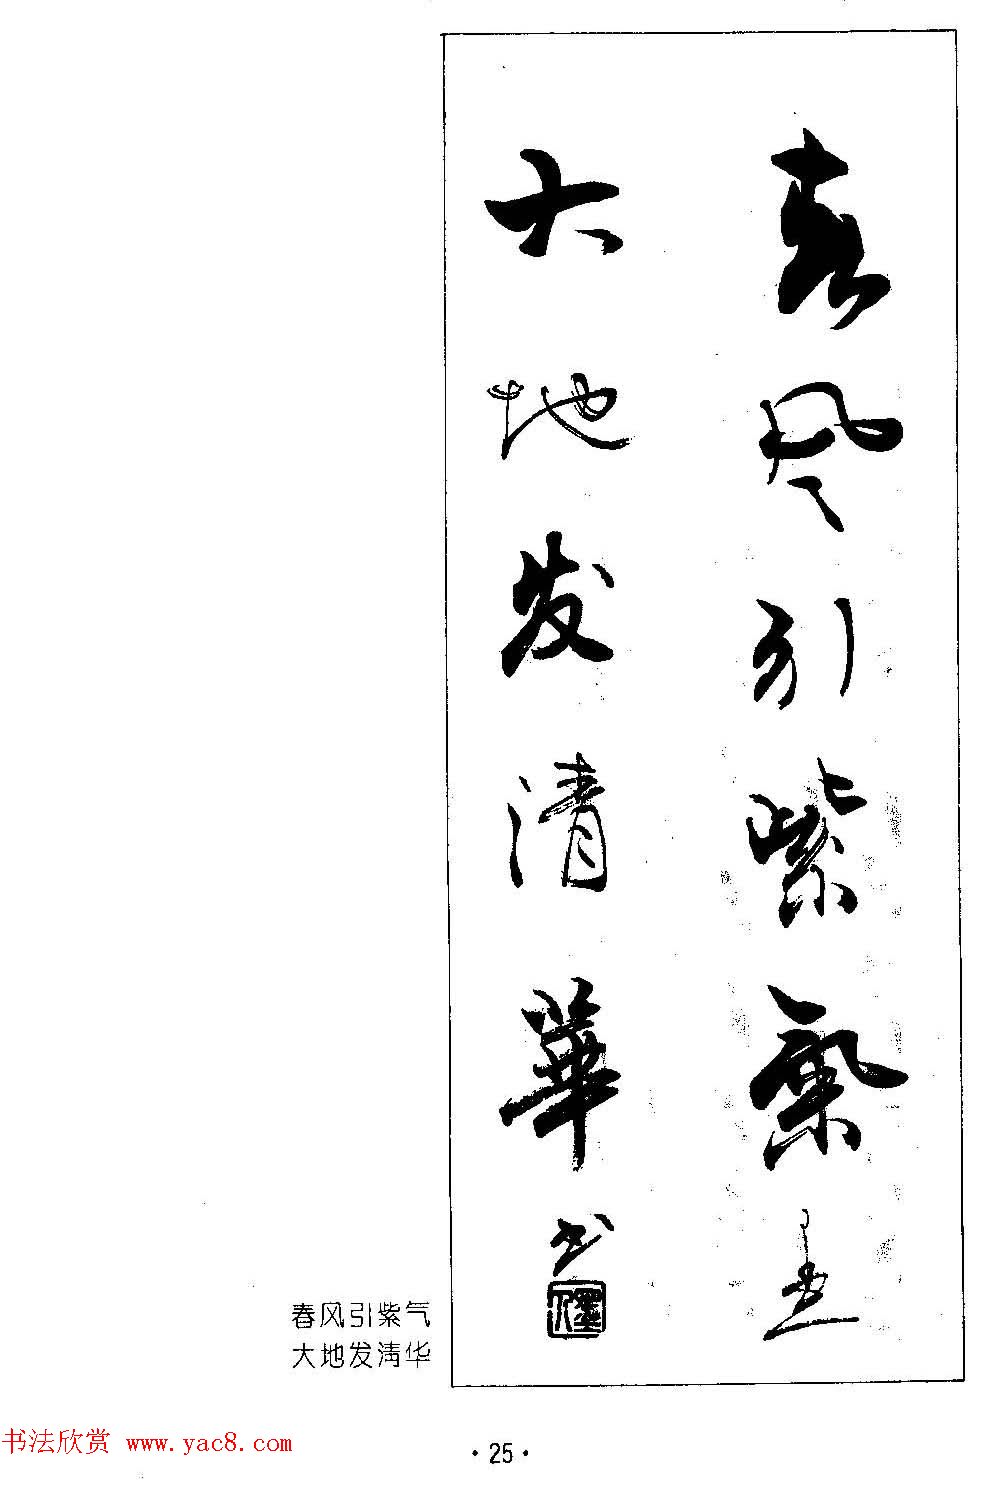 春风引紫氣
大地发清華
书
春风引紫气
大地发清华
书法欣赏 www.yac8.com
·25·